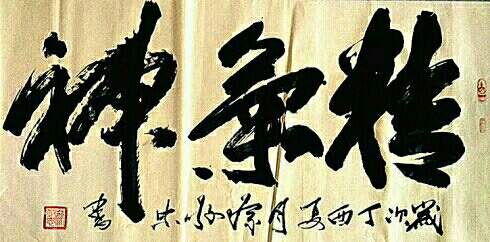 精氣神
歲次丁酉夏月
書